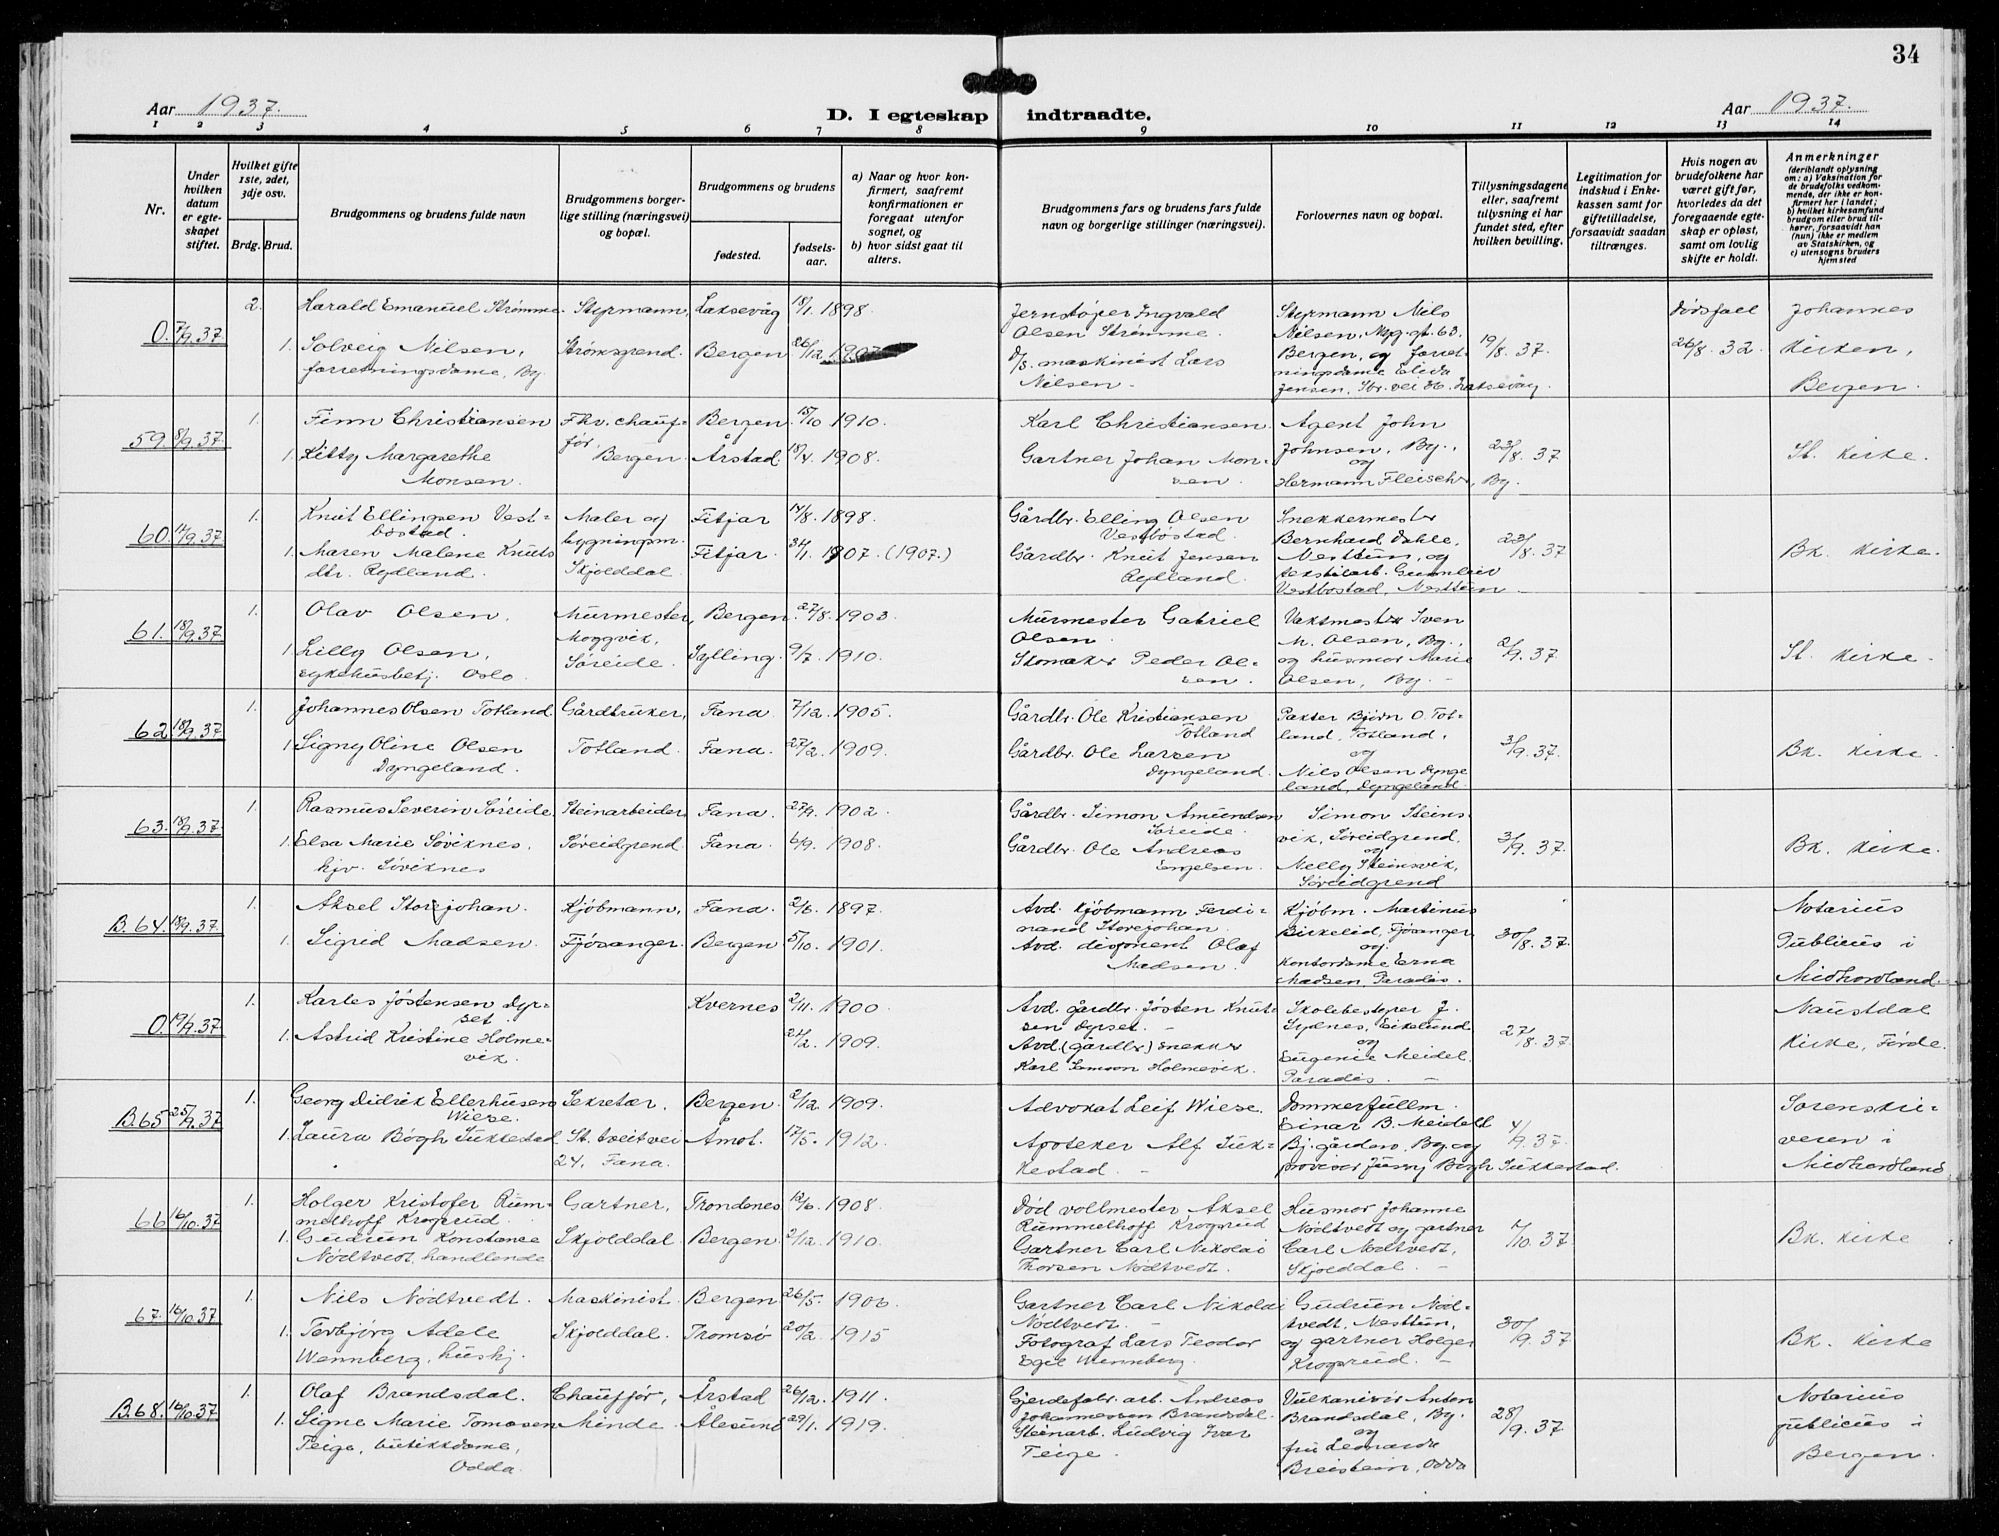 34
Aar 1937.
D. I egteskap indtraadte.
Aar 1937.
1 2 3 4 5 6 7 8 9 10 11 12 13 14
Nr.
Under hvilken datum er egteskapet stiftet.
Hvilket gifte 1ste, 2det, 3dje osv.
Brdg. Brud.
Brudgommens og brudens fulde navn
Brudgommens borgerlige stilling (næringsvei) og bopæl.
Brudgommens og brudens
fødested.
fødselsaar.
a) Naar og hvor konfirmert, saafremt konfirmationen er foregaat utenfor sognet, og
b) hvor sidst gaat til alters.
Brudgommens fars og brudens fars fulde navn og borgerlige stillinger (næringsvei).
Forlovernes navn og bopæl.
Tillysningsdagene eller, saafremt tillysning ei har fundet sted, efter hvilken bevilling.
Legitimation for indskud i Enkekassen samt for giftetilladelse, forsaavidt saadan tiltrænges.
Hvis nogen av brudefolkene har været gift før, hvorledes da det foregaaende egteskap er opløst, samt om lovlig skifte er holdt.
Anmerkninger
(deriblandt oplysning om: a) Vaksination for de brudefolks vedkommende, der ikke er konfirmert her i landet;
b) hvilket kirkesamfund brudgom eller brud tilhører, forsaavidt han (hun) ikke er medlem av Statskirken, og
c) utensogns bruders hjemsted
O. 7/9.37 2. Harald Emanuel Strømme. Styrmann, Laksevåg 18/1. 1898.
1. Solveig Nilsen, Strømsgrend. Bergen 26/12
forretningsdame, By.
Jernstøper Ingvald
Olsen Strømme.
D/s. maskinist Lars
Nilsen -
Styrmann Nils
Nilsen, Mpg. gt. 63.
Bergen, og forret-
ningsdame
Jensen, Str. vei 36. Laksevåg.
19/8. 37.
Dødsfall
26/8. 32.
Johannes
Kirken,
Bergen.
59. 8/9.37 1. Finn Christiansen Fhv. chauf- Bergen 15/10 1910.
1. Kitty Margarethe før, Bergen. Årstad. 18/4 1908.
Monsen.
Karl Christiansen.
Gartner Johan Mon-
sen.
Agent John
Johnsen, By.,
og
Hermann Fleischer, By.
23/8. 37
Sl. Kirke.
60. 14/9.37 1. Knut Ellingsen Vest- Maler og Fitjar 14/8. 1898.
bostad. bygningsm.
1. Maren Malene Knuts Skjolddal. Fitjar. 31/1. 1907. (1907.)
dtr. Rydland.
Gårdbr. Elling Olsen
Vestbostad.
Gårdbr. Knut Jensen
Rydland.
Snekkermester
Bernhard Dahle,
Nesttun, og
tekstilarb. Gunnleiv
Vestbostad, Nesttun
23/8. 37
Bk. Kirke.
61. 18/9.37 1. Olav Olsen. Murmester, Bergen. 27/8. 1903.
1. Lilly Olsen, Søreide. Sylling. 9/7. 1910.
sykehusbetj. Oslo.
Murmester Gabriel
Olsen.
Skomaker Peder Ol-
sen.
Vaktmester Sven
M. Olsen, By.,
og husmor Marie
Olsen, By. -
2/9. 37.
Sl. Kirke.
62. 18/9.37 1. Johannes Olsen Totland. Gårdbruker, Fana. 7/12. 1905.
1. Signy Oline Olsen Totland. Fana. 27/2. 1909.
Dyngeland.
Gårdbr. Ole Kristiansen
Totland
Gårdbr. Ole Larsen
Dyngeland.
Pakter Bjørn O. Tot-
land, Totland,
og
Nils Olsen Dynge
land, Dyngeland.
3/9. 37.
Bk. Kirke.
63. 18/9.37 1. Rasmus Severin Søreide. Steinarbeider, Fana. 27/9. 1902.
1. Elsa Marie Søviknes, Søreidgrend. Fana. 6/9. 1908.
hjv. Søviknes
Gårdbr. Simon Amundsen
Søreide.
Gårdbr. Ole Andreas
Engelsen.
Simon Steins
vik, Søreidgrend,
og
Nelly Steinsvik,
Søreidgrend
3/9. 37.
Bk. Kirke.
B. 64. 18/9.37 1. Aksel Storejohan. Kjøbmann, Fana. 2/6. 1897.
1. Sigrid Madsen. Fjøsanger. Bergen. 5/10. 1901.
Avd. Kjøbmann Ferdi-
nand Storejohan.
Avd. disponent Olaf
Madsen.
Kjøbm. Martinus
Birkelid, Fjøsanger,
og
kontordame Erna
Madsen, Paradis.
30/8. 37.
Notarius
Publicus i
Midhordland.
O. 19/9.37 1. Karles Jøstensen Dyr- Kvernes 2/11. 1900
set.
1. Astrid Kristine Holme- 24/2. 1909.
vik.
Avd. gårdbr. Jøsten Knut-
sen Dyrset. -
Avd. (gårdbr.) snekker
Karl Samson Holmevik.
Skolebestyrer J.
Sydnes, Eikelund
og
Eugenie Meidel.
Paradis. -
27/8. 37.
Naustdal
Kirke, Førde.
B. 65 25/9.37 1. Georg Didrik Ellerhusen Sekretær. Bergen. 2/12. 1909.
Wiese.
1. Laura Bøgh Tukkestad St. tveitvei Åmot. 17/5. 1912.
24, Fana.
Advokat Leif Wiese.
Apoteker Alf Tuk-
kestad. -
Dommerfullm.
Einar B. Meidell
Bj. gården, By. og
provisor Jenny Bøgh Tukkestad.
4/9. 37.
Sorenskri-
veren i
Midhordland
66 16/10.37 1. Holger Kristofer Rum- Gartner, Trondenes 12/6. 1908.
melhoff Krogsrud.
1. Gudrun Konstanse Skjolddal. Bergen. 2/12. 1910.
Nødtvedt, handlende.
Død vollmester Aksel
Rummelhoff Krogsrud
Gartner Carl Nikolai
Thorsen Nødtvedt.
Husmor Johanne
Nødtvedt og gartner
Carl Nødtvedt,
Skjolddal. -
1/10. 37.
Bk. Kirke
67. 16/10.37 1. Nils Nødtvedt. Maskinist. Bergen 26/5. 1906.
1. Torbjørg Adele Skjolddal. Tromsø 20/2. 1915
Wennberg, hushj.
Gartner Carl Nikolai
Nødtvedt. -
Fotograf Lars Teodor
Egil Wennberg.
Gudrun Nød-
tvedt, Nesttun,
og gartner Holger
Krogsrud. -
30/9. 37
Bk. Kirke
B. 68. 16/10.37 1. Olaf Brandsdal. Chauffør, Årstad 26/12. 1911.
1. Signe Marie Tomasen Minde. Ålesund 29/1. 1919.
Teige, butikkdame,
Odda.
Gjerdefabr. arb. Andreas
Johannessen Brandsdal.
Steinarb. Ludvig Ivar
Teige.
Vulkanisør Anton
Brandsdal, By.
og
fru Leonarda
Breistein, Odda
28/9. 37
Notarius
publicus i
Bergen.